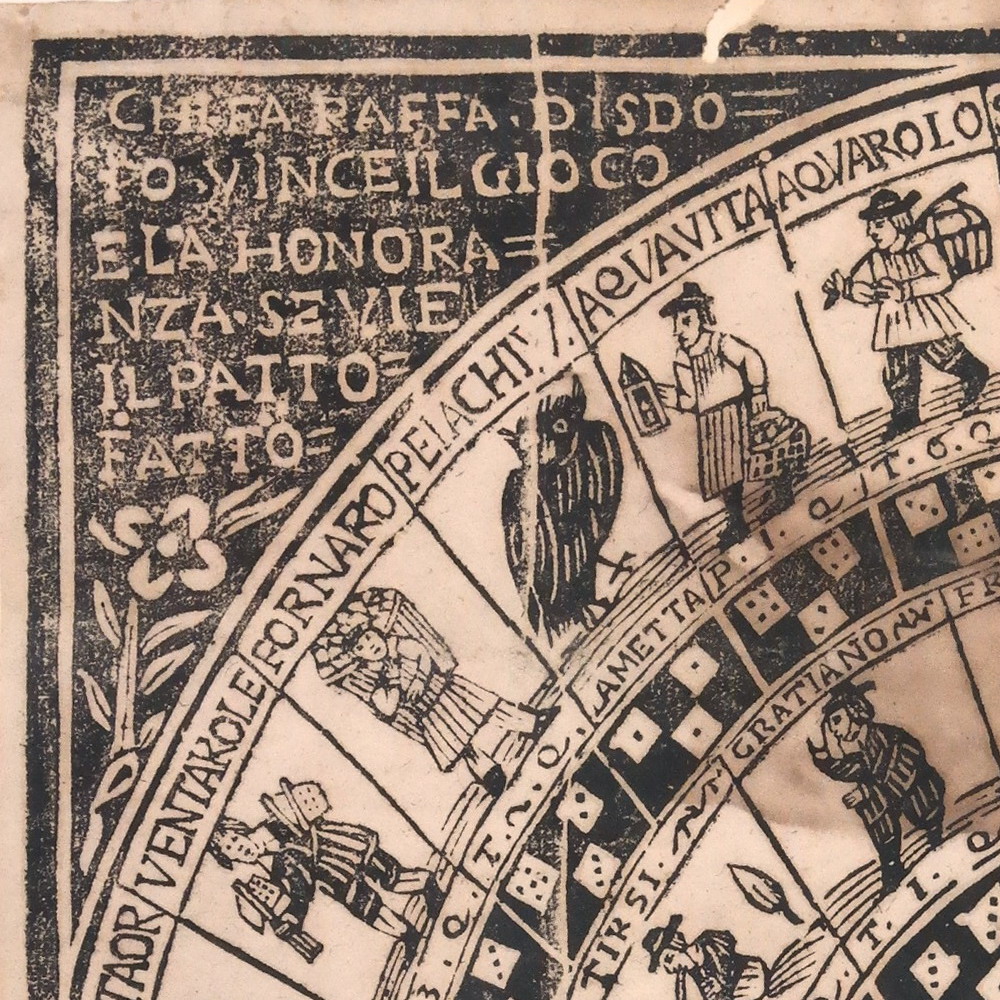 CHI FA RAFFA. DISDO=
TO VINCE IL GIOCO
E LA HONORA=
NZA. SE VIE
IL PATTO=
FATTO=
TAOR
VENTAROLE
FORNARO
PELACHIV
AQUAVITA
AQVAROLO
Q.
T. 2. Q.
LAMETTA
P. 1. Q.
T. 6. Q
TIRSI.
GRATIANO
FR
T. 1. Q